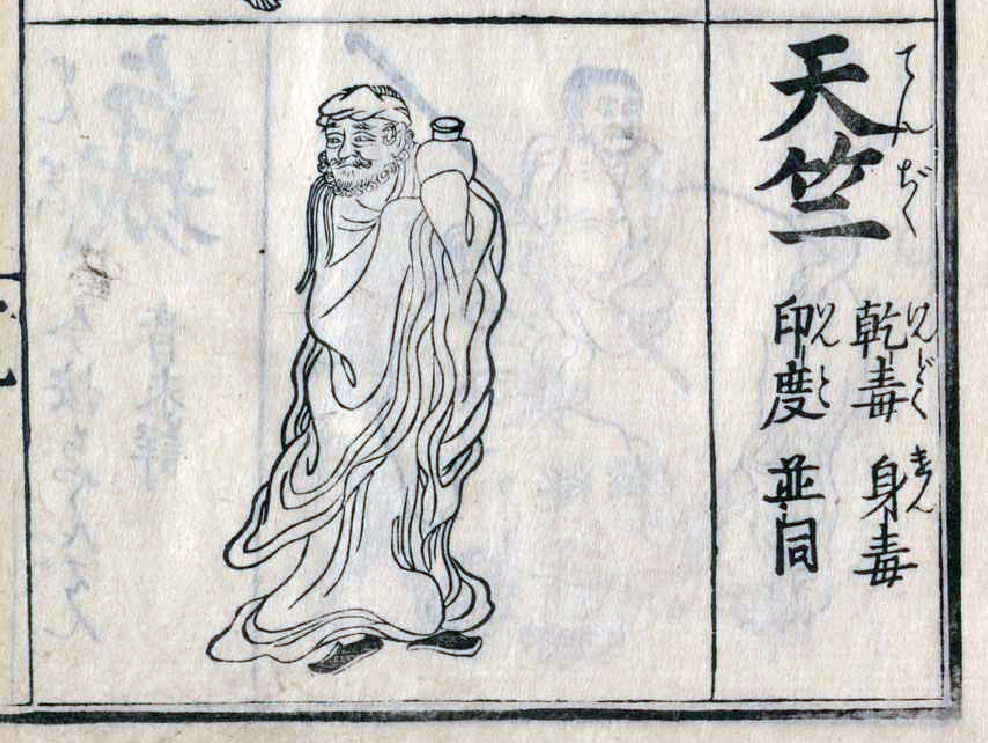 天竺
てんぢく
乾毒 身毒
けんどく きん
印度 並同
いんと